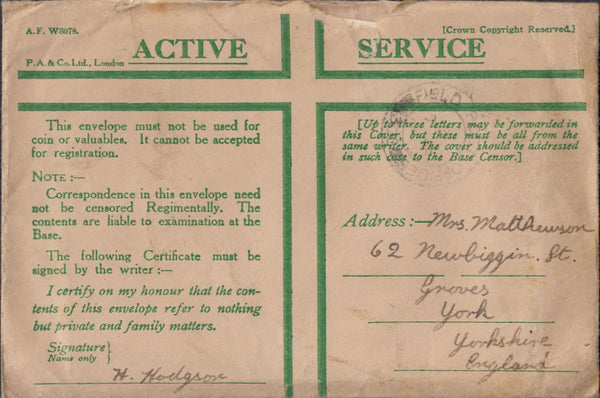 A.F. W3078.
[Crown Copyright Reserved.]
ACTIVE SERVICE
P.A. & Co. Ltd., London
FIELD
OFFICE
This envelope must not be used for
coin or valuables. It cannot be accepted
for registration.
NOTE :—
Correspondence in this envelope need
not be censored Regimentally. The
contents are liable to examination at the
Base.
The following Certificate must be
signed by the writer :—
I certify on my honour that the con-
tents of this envelope refer to nothing
but private and family matters.
Signature }
Name only
H. Hodgson
[Up to three letters may be forwarded in
this Cover, but these must be all from the
same writer. The cover should be addressed
in such case to the Base Censor.]
Address :— Mrs. Matthewson
62 Newbiggin. St.
Groves
York
Yorkshire
England